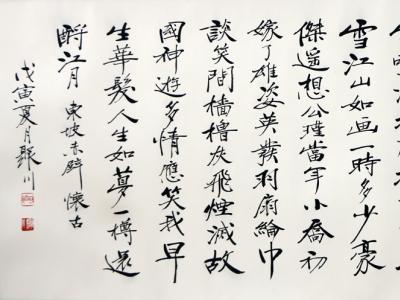 雪江山如画一時多少豪
傑遥想公瑾當年小喬初
嫁了雄姿英發羽扇綸巾
談笑間檣櫓灰飛煙滅故
國神遊多情應笑我早
生華髮人生如夢一樽還
酹江月 東坡赤壁懷古
戊寅夏月聚川